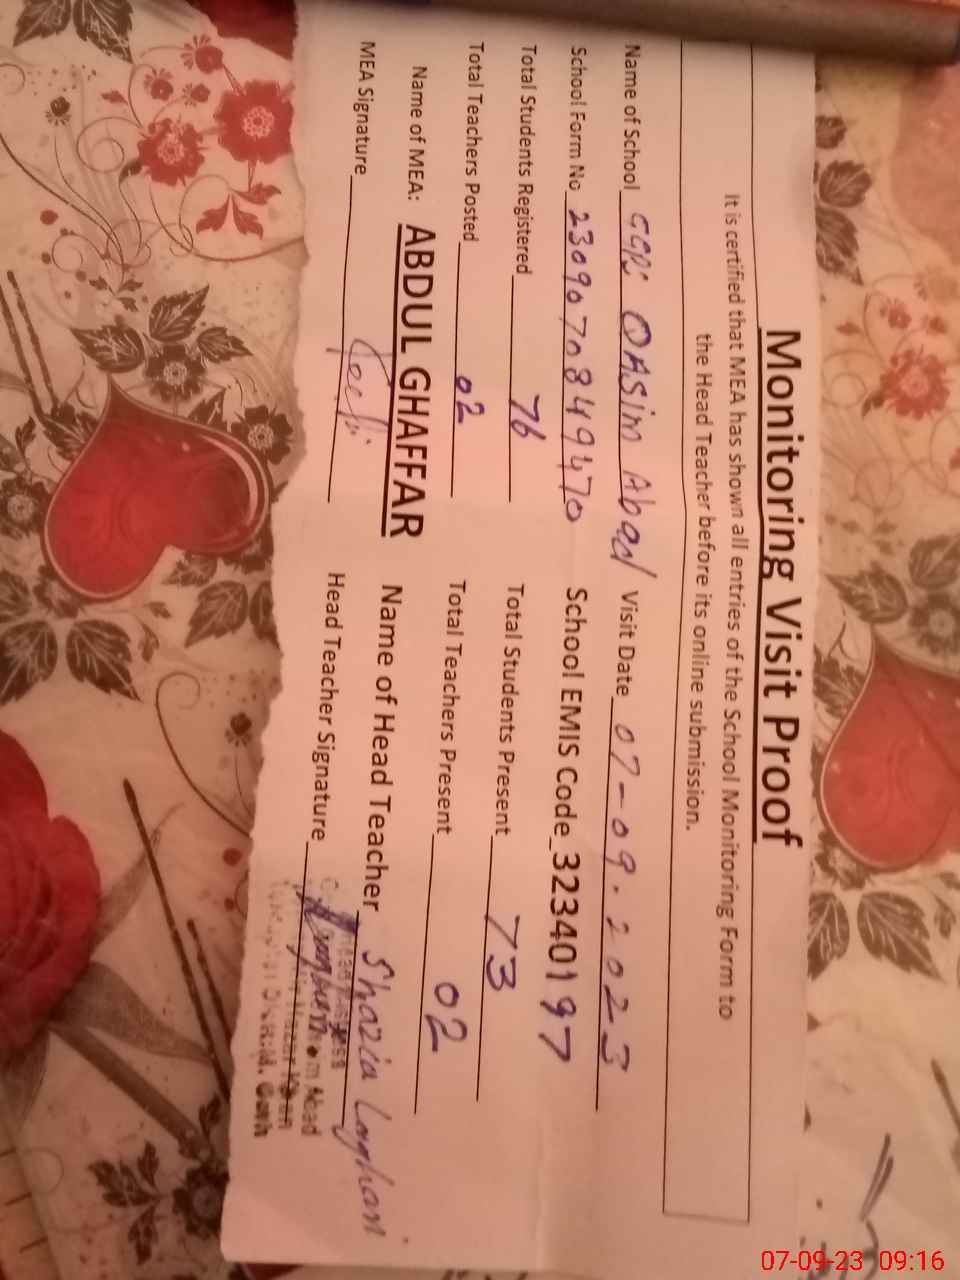 Monitoring Visit Proof
It is certified that MEA has shown all entries of the School Monitoring Form to
the Head Teacher before its online submission.
Name of School QASim Abad Visit Date 07-09.2023
School Form No 2309070849470 School EMIS Code 32340197
Total Students Registered 76 Total Students Present 73
Total Teachers Posted 02 Total Teachers Present 02
Name of MEA: ABDUL GHAFFAR Name of Head Teacher Shazia Laghari
MEA Signature Head Teacher Signature
07-09-23 09:16